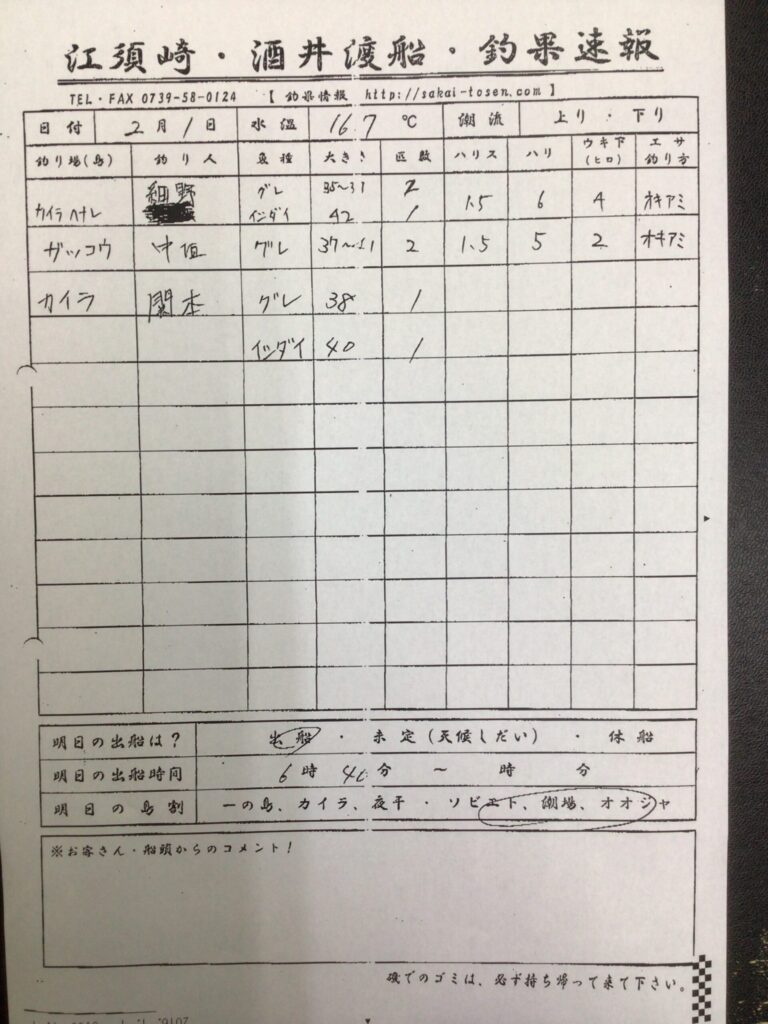 江須崎・酒井渡船・釣果速報
TEL・FAX 0739-58-0124 【釣果情報 http://sakai-tosen.com】
日付 2月1日 水温 16.7 ℃ 潮流 上り・下り
釣り場(島) 釣り人 魚種 大きさ 匹数 ハリス ハリ ウキ下(ヒロ) エサ釣り方
カイラハナレ 細野 グレ 35~31 2 1.5 6 4 オキアミ
イシダイ 42 1
ザッコウ 中垣 グレ 2 1.5 5 2 オキアミ
カイラ 関本 グレ 38 1
イシダイ 40 1
明日の出船は? 出船・未定(天候しだい)・休船
明日の出船時間 6時40分 ~ 時 分
明日の島割 一の島、カイラ、夜干・ソビエト、潮場、オオジャ
※お客さん・船頭からのコメント!
磯でのゴミは、必ず持ち帰って来て下さい。